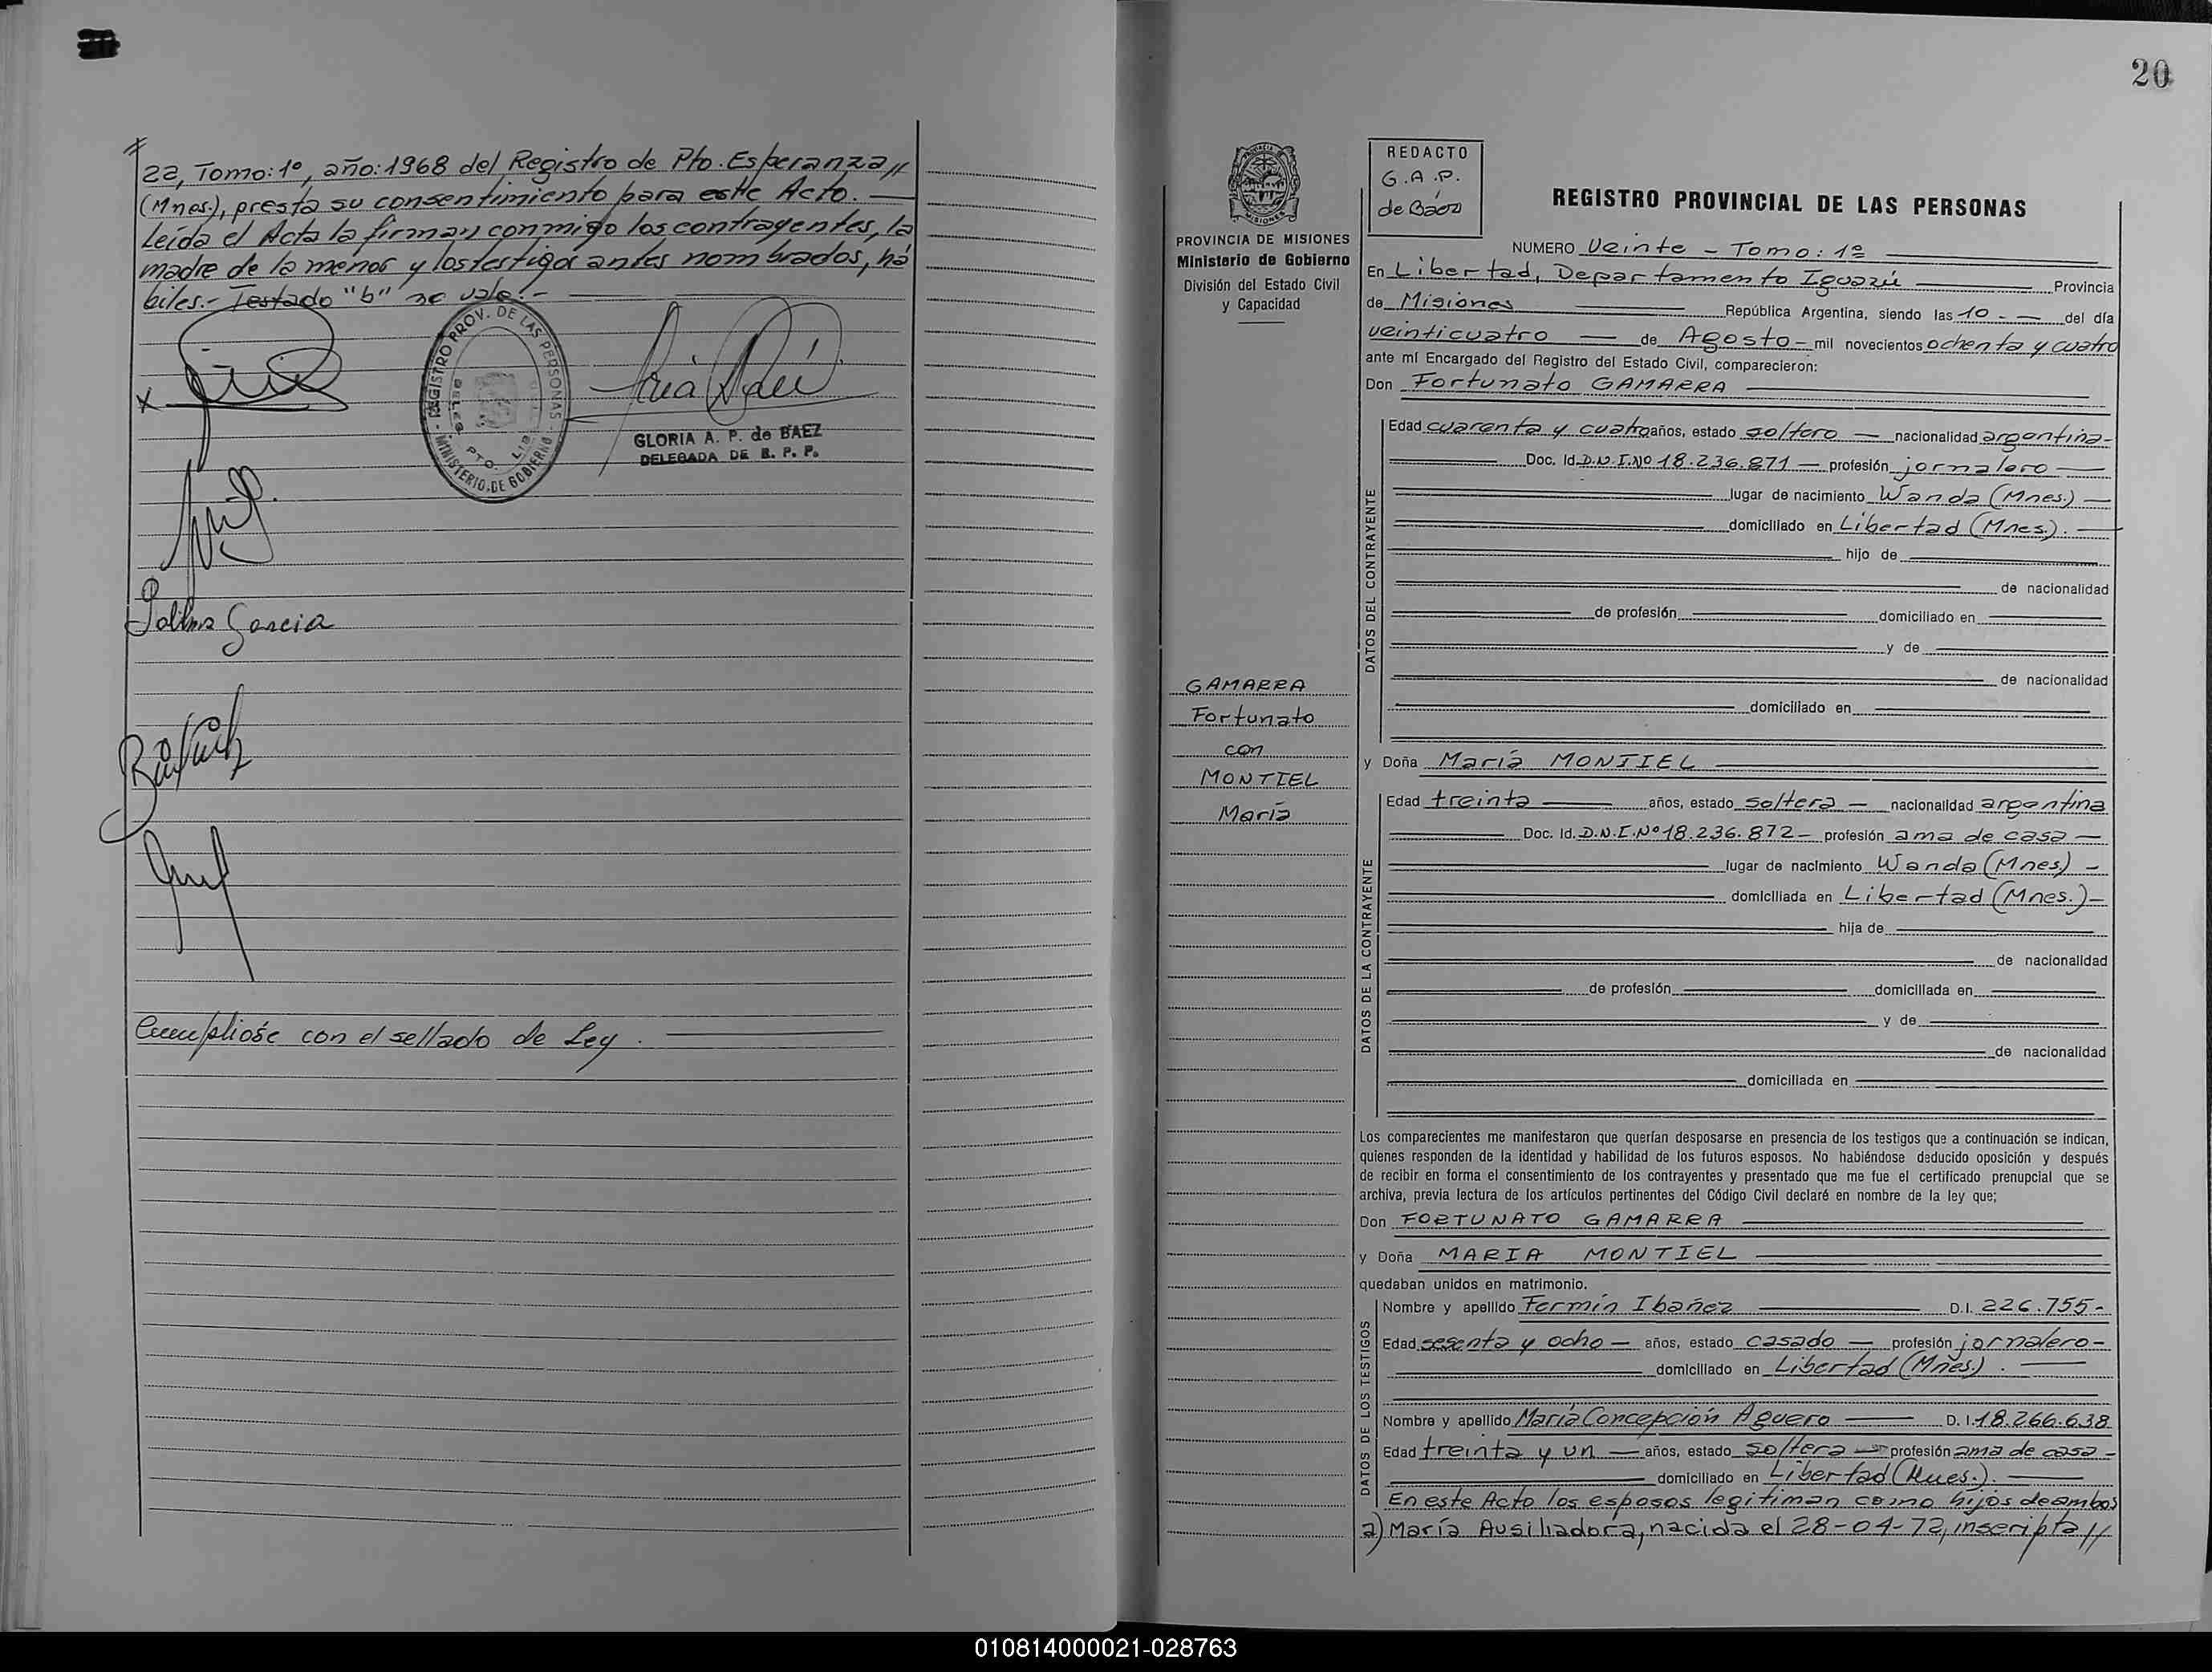 22, Tomo: 1º, año: 1968 del Registro de Pto. Esperanza //
(Mnes.), presta su consentimiento para este Acto. —
Leída el Acta la firman conmigo los contrayentes, la
madre de la menor y los testigos antes nombrados, há
biles.- Testado "b" no vale.-
REGISTRO PROV. DE LAS PERSONAS
MINISTERIO DE GOBIERNO
GLORIA A. P. de BAEZ
DELEGADA DE R. P. P.
Garcia
Cumplióse con el sellado de Ley.
20
PROVINCIA DE MISIONES
Ministerio de Gobierno
División del Estado Civil
y Capacidad
GAMARRA
Fortunato
con
MONTIEL
María
REDACTO
G.A.P.
de Báez
REGISTRO PROVINCIAL DE LAS PERSONAS
NUMERO Veinte - Tomo: 1º
En Libertad, Departamento Iguazú Provincia
de Misiones República Argentina, siendo las 10 - del día
veinticuatro — de Agosto - mil novecientos ochenta y cuatro
ante mí Encargado del Registro del Estado Civil, comparecieron:
Don Fortunato GAMARRA
DATOS DEL CONTRAYENTE
Edad cuarenta y cuatro años, estado soltero — nacionalidad argentina-
Doc. Id. D.N.I.Nº 18.236.871 — profesión jornalero
lugar de nacimiento Wanda (Mnes.) —
domiciliado en Libertad (Mnes.). —
hijo de
de nacionalidad
de profesión domiciliado en
y de
de nacionalidad
domiciliado en
y Doña María MONTIEL
DATOS DE LA CONTRAYENTE
Edad treinta años, estado soltera — nacionalidad argentina
Doc. Id. D.N.I.Nº 18.236.872 - profesión ama de casa —
lugar de nacimiento Wanda (Mnes) -
domiciliada en Libertad (Mnes.) -
hija de
de nacionalidad
de profesión domiciliada en
y de
de nacionalidad
domiciliada en
Los comparecientes me manifestaron que querían desposarse en presencia de los testigos que a continuación se indican,
quienes responden de la identidad y habilidad de los futuros esposos. No habiéndose deducido oposición y después
de recibir en forma el consentimiento de los contrayentes y presentado que me fue el certificado prenupcial que se
archiva, previa lectura de los artículos pertinentes del Código Civil declaré en nombre de la ley que;
Don FORTUNATO GAMARRA
y Doña MARIA MONTIEL
quedaban unidos en matrimonio.
DATOS DE LOS TESTIGOS
Nombre y apellido Fermín Ibañez D.I. 226.755-
Edad sesenta y ocho — años, estado casado — profesión jornalero-
domiciliado en Libertad (Mnes.).
Nombre y apellido María Concepción Aguero D. I. 18.266.638
Edad treinta y un — años, estado soltera — profesión ama de casa -
domiciliado en Libertad (Mnes.).
En este Acto los esposos legitiman como hijos de ambos
a) María Ausiliadora, nacida el 28-04-72, inscripta //
010814000021-028763